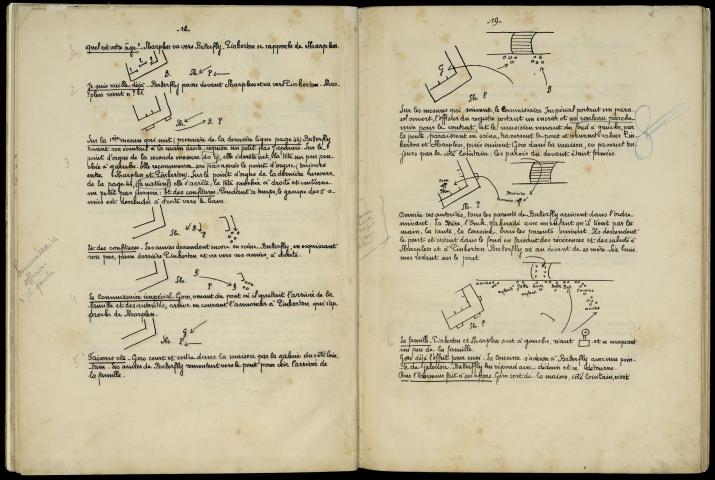 -18-
Quel est votre âge? - Sharpless va vers Butterfly. Pinkerton se rapproche de Sharpless.
B. Sh. P
Je suis vieille déjà - Butterfly passe devant Sharpless et va vers Pinkerton. Shar-
pless vient n°
Sh. B. P
Sur la 1ère mesure qui suit (première de la dernière ligne page 44) Butterfly
tenant son éventail à la main droite, esquisse un petit pas japonais. Sur le
point d'orgue de la seconde mesure elle s'arrête net, la tête un peu pen-
chée à gauche. Elle recommence son pas après le point d'orgue, toujours
entre Sharpless et Pinkerton. Sur le point d'orgue de la dernière mesure
de la page 44, elle s'arrête, la tête penchée à droite et continue
un petit pas jusque: Et des confitures. Pendant ce temps, le groupe des amies
est descendu à droite vers le banc.
Sh. B P
Et des confitures. Les amies descendent encore en scène. Butterfly, en esquissant
son pas, passe derrière Pinkerton et va vers ses amies, à droite.
Sh. P B
Le Commissaire impérial. Goro, venant du pont où il guettait l'arrivée de la
famille et des autorités, arrive en courant l'annoncer à Pinkerton qui s'ap-
proche de Sharpless.
G
Sh. P
Taisons vite. Goro court et entre dans la maison par la galerie du côté loin-
tain. Les amies de Butterfly remontent vers le pont pour voir l'arrivée de
la famille.
-19-
G
Sh. P
B
Sur les mesures qui suivent, le Commissaire Impérial portant un para-
sol ouvert, l'officier du registre portant un encrier et un rouleau parche-
min pour le contrat, et le musicien venant du fond à gauche par
la pente, paraissent en scène, traversent le pont et viennent saluer Pin-
kerton et Sharpless, puis suivent Goro dans la maison, en passant tou-
jours par le côté lointain: les parois du devant étant fermées.
Sh. P
Derrière ces autorités, tous les parents de Butterfly arrivent dans l'ordre
suivant: la Mère, l'Oncle, Yakusidé avec un enfant qu'il tient par la
main, la tante, la cousine. Tous les parents suivent. Ils descendent
le pont et restent dans le fond en faisant des révérences et des saluts à
Sharpless et à Pinkerton. Butterfly va au devant de sa mère. Les hom-
mes restent sur le pont.
Sh. P
La famille. Pinkerton et Sharpless sont à gauche, riant et se moquant
un peu de la famille.
Goro déjà l'offrit pour moi. La cousine s'adresse à Butterfly avec une poin-
te de jalousie. Butterfly lui répond avec dédain et se détourne.
Goro sort de la maison, côté lointain, vient